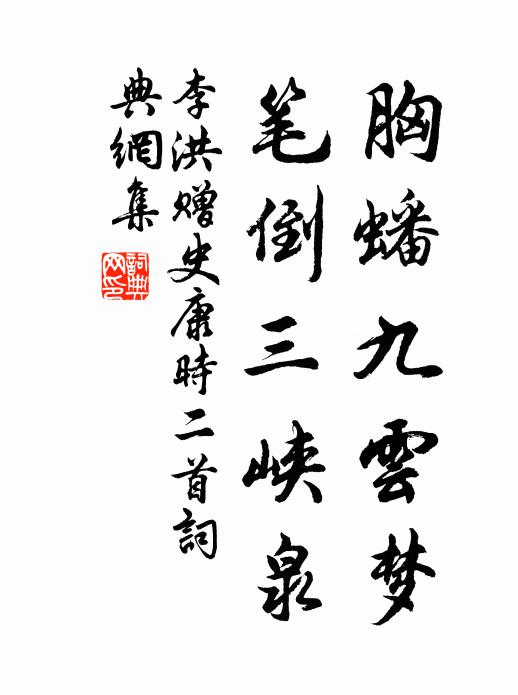 胸蟠九雲梦
笔倒三峡泉
李洪赠史康時二首詞
典網集
詞典网印